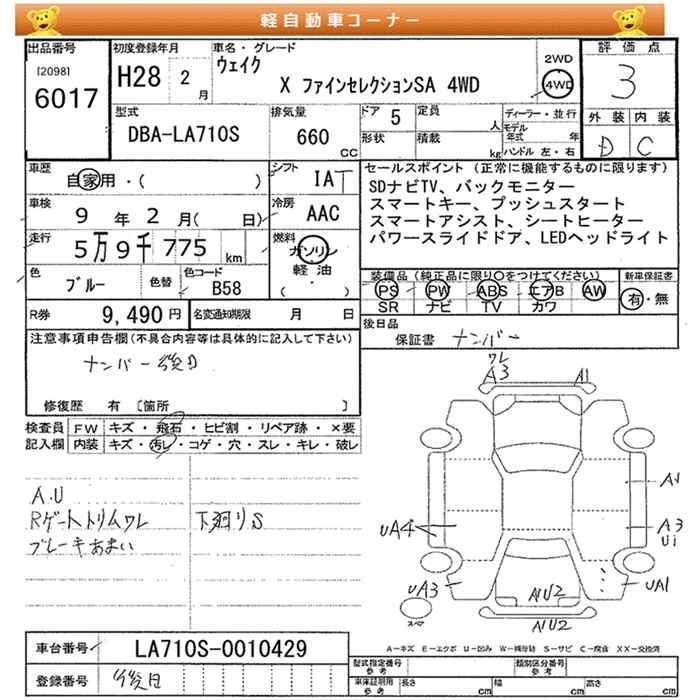 軽自動車コーナー
出品番号
[2098]
6017
初度登録年月
H28 2月
車名・グレード
ウェイク
X ファインセレクションSA 4WD
2WD
4WD
評価点
3
外装 内装
D C
型式
DBA-LA710S
排気量
660 CC
ドア 5
定員 人
形状
積載 kg
ディーラー・並行
モデル年式 年
ハンドル 左・右
車歴
自家用・( )
シフト IAT
車検
9年 2月( 日)
冷房 AAC
走行
5万9千775 km
燃料 ガソリン
軽油
( ・ )
色 ブルー
色替
色コード B58
R券 9,490円
名変通知期限 月 日
セールスポイント(正常に機能するものに限ります)
SDナビTV、バックモニター
スマートキー、プッシュスタート
スマートアシスト、シートヒーター
パワースライドドア、LEDヘッドライト
装備品(純正品に限り〇をつけてください)
PS PW ABS エアB AW
SR ナビ TV カワ
新車保証書
有・無
後日品
保証書 ナンバー
注意事項申告欄(不具合内容等は具体的に記入して下さい)
ナンバー後日
修復歴 有 〔箇所 〕
検査員記入欄
FW キズ・飛石・ヒビ割・リペア跡・×要
内装 キズ・汚レ・コゲ・穴・スレ・キレ・破レ
A.U
Rゲートトリムワレ 下廻りS
ブレーキあまい
ワレ
A3 A1
A1
UA4 A3
U1
UA3 UA1
AU2
AU2
スペア
A-キズ E-エクボ U-凹み W-補修跡 S-サビ C-腐食 XX-交換済
車台番号 LA710S-0010429
登録番号 後日
型式指定番号 参考
類別区分番号 参考
車庫証明用 参考
長さ cm 幅 cm 高さ cm